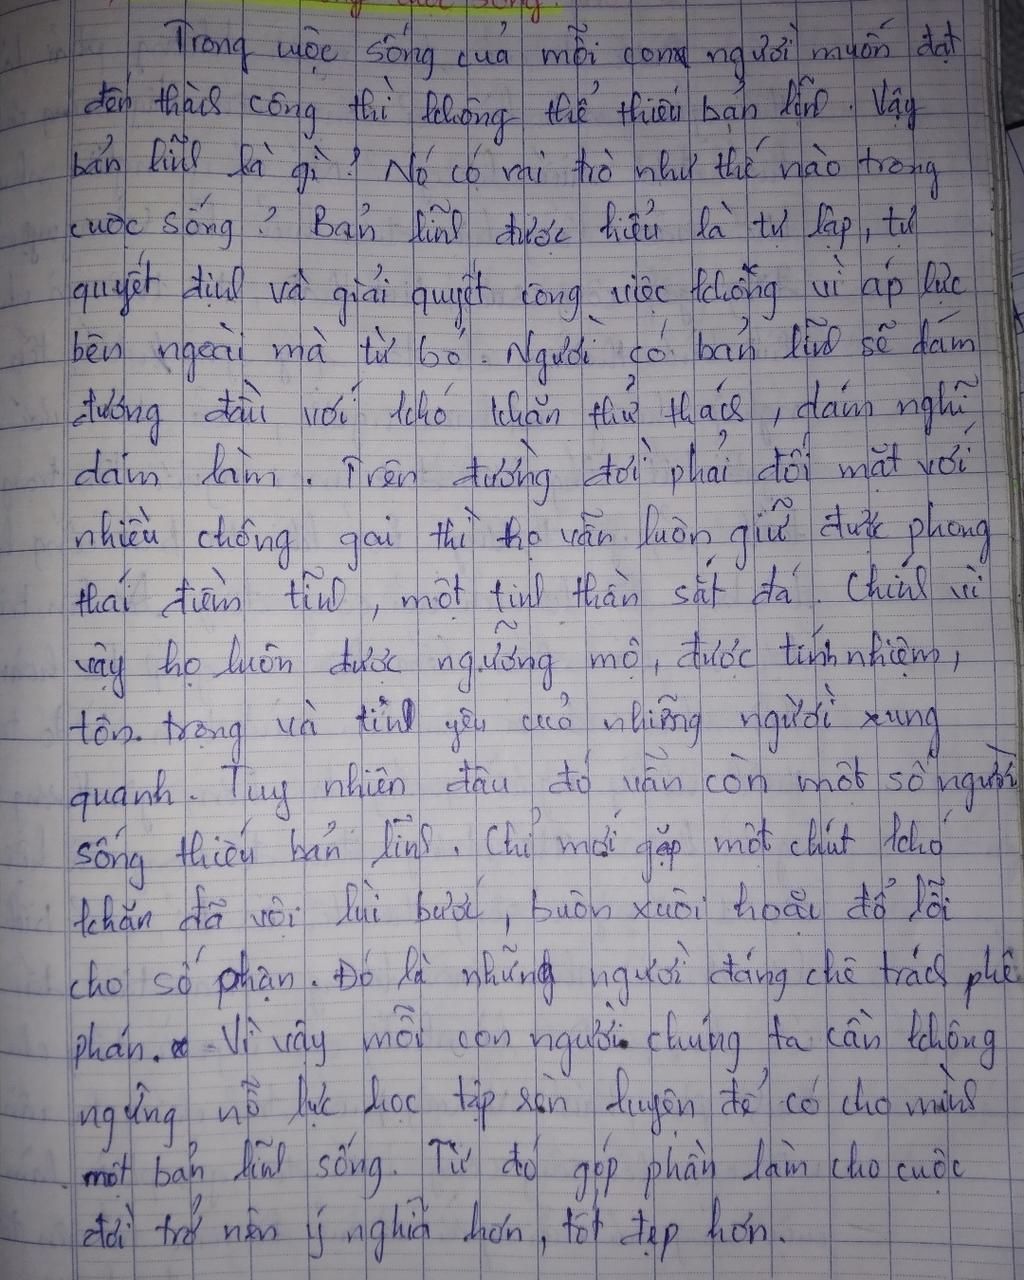 cuộc sống.
Trong cuộc sống của mỗi con người muốn đạt
đến thành công thì không thể thiếu bản lĩnh. Vậy
bản lĩnh là gì? Nó có vai trò như thế nào trong
cuộc sống? Bản lĩnh được hiểu là tự lập, tự
quyết định và giải quyết công việc không vì áp lực
bên ngoài mà từ bỏ. Người có bản lĩnh sẽ dám
đương đầu với khó khăn thử thách, dám nghĩ
dám làm. Trên đường đời phải đối mặt với
nhiều chông gai thì họ vẫn luôn giữ được phong
thái điềm tĩnh, một tinh thần sắt đá. Chính vì
vậy họ luôn được ngưỡng mộ, được tính nhiệm,
tôn trọng và tình yêu quả những người xung
quanh. Tuy nhiên đâu đó vẫn còn một số người
sống thiếu bản lĩnh. Chỉ mới gặp một chút khó
khăn đã vội lùi bước, buôn xuôi hoặc đổ lỗi
cho số phận. Đó là những người đáng chê trách phê
phán. Vì vậy mỗi con người chúng ta cần không
ngừng nỗ lực học tập rèn luyện để có cho mình
một bản lĩnh sống. Từ đó góp phần làm cho cuộc
đời trở nên ý nghĩa hơn, tốt đẹp hơn.